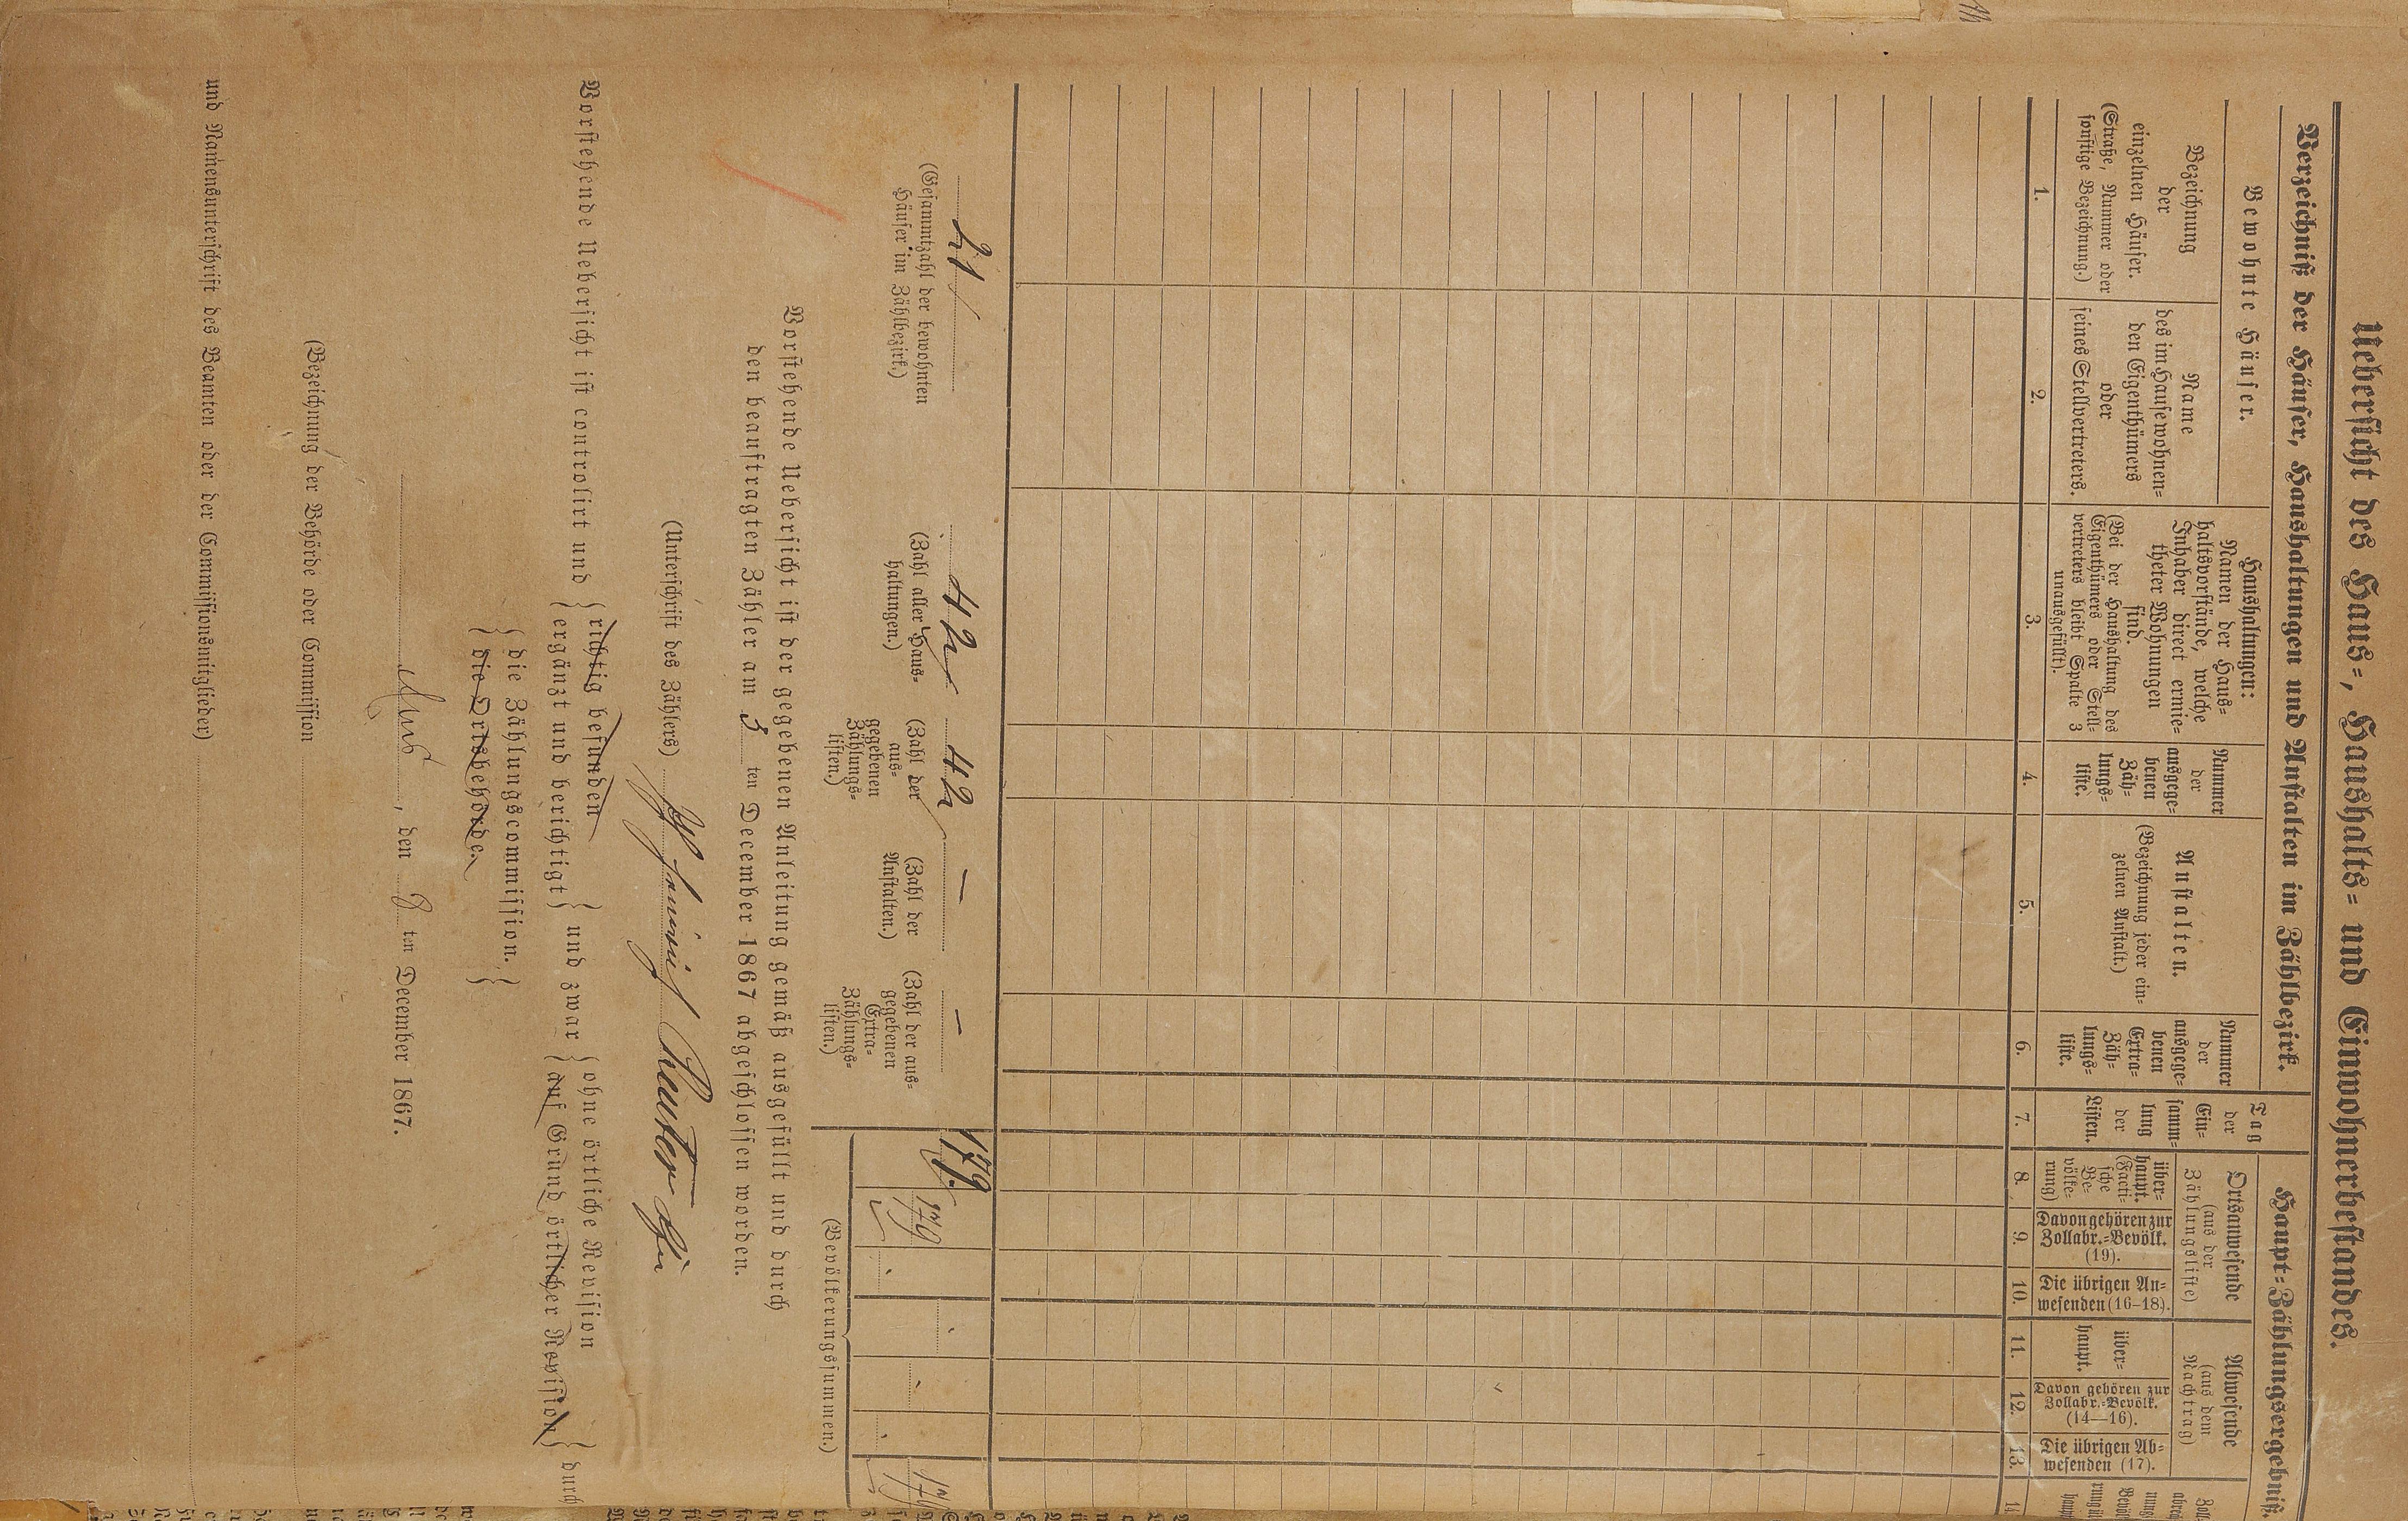 Uebersicht des Haus-, Haushalts- und Einwohnerbestandes.
Verzeichniß der Häuser, Haushaltungen und Anstalten im Zählbezirk.
Haupt-Zählungsergebniß.
Bewohnte Häuser.
Bezeichnung
der
einzelnen Häuser.
(Straße, Nummer oder
sonstige Bezeichnung.)
Name
des im Hause wohnen-
den Eigenthümers
oder
seines Stellvertreters.
Haushaltungen:
Namen der Haus-
haltsvorstände, welche
Inhaber direct ermie-
theter Wohnungen
sind.
(Bei der Haushaltung des
Eigenthümers oder Stell-
vertreters bleibt Spalte 3
unausgefüllt).
Nummer
der
ausgege-
benen
Zäh-
lungs-
liste.
Anstalten.
(Bezeichnung jeder ein-
zelnen Anstalt.)
Nummer
der
ausgege-
benen
Extra-
Zäh-
lungs-
liste.
Tag
der
Ein-
samm-
lung
der
Listen.
Ortsanwesende
(aus der
Zählungsliste)
über-
haupt.
(Facti-
sche
Be-
völke-
rung)
Davon gehören zur
Zollabr.-Bevölk.
(19).
Die übrigen An-
wesenden (16-18).
Abwesende
(aus dem
Nachtrag)
über-
haupt.
Davon gehören zur
Zollabr.-Bevölk.
(14—16).
Die übrigen Ab-
wesenden (17).
Zoll-
abrech
nung
Bevöl
rung ü
haup
1. 2. 3. 4. 5. 6. 7. 8. 9. 10. 11. 12. 13. 14
21 42 42 — — 179
179
(Gesammtzahl der bewohnten
Häuser im Zählbezirk.)
(Zahl aller Haus-
haltungen.)
(Zahl der
aus-
gegebenen
Zählungs-
listen.)
(Zahl der
Anstalten.)
(Zahl der aus-
gegebenen
Extra-
Zählungs-
listen.)
(Bevölkerungssummen.)
Vorstehende Uebersicht ist der gegebenen Anleitung gemäß ausgefüllt und durch
den beauftragten Zähler am 3 ten December 1867 abgeschlossen worden.
(Unterschrift des Zählers)
Vorstehende Uebersicht ist controlirt und { richtig befunden
ergänzt und berichtigt } und zwar { ohne örtliche Revision
auf Grund örtlicher Revision } durch
{ die Zählungscommission.
die Ortsbehörde. }
, den 9 ten December 1867.
(Bezeichnung der Behörde oder Commission
und Namensunterschrift des Beamten oder der Commissionsmitglieder)